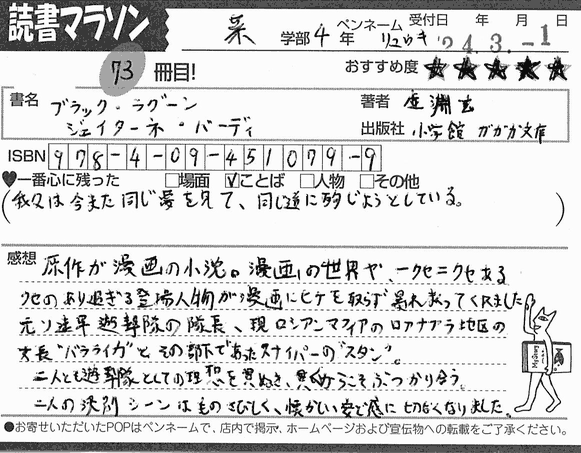 読書マラソン
薬 学部 4 年 ペンネーム リュウキ 受付日 '24年 3月 -1日
73 冊目! おすすめ度 ★★★★★
書名 ブラック・ラグーン 著者 虚淵玄
シェイターネ・バーディ 出版社 小学館 ガガガ文庫
ISBN 978-4-09-451079-9
♥一番心に残った □場面 ☑ことば □人物 □その他
(我々は今また同じ夢を見て、同じ道に殉じようとしている。
感想 原作が漫画の小説。漫画の世界や、一クセ二クセある
クセのあり過ぎる登場人物が漫画にヒケを取らず暴れまってくれました
元ソ連軍遊撃隊の隊長、現ロシアンマフィアのロアナプラ地区の
支長"バラライカ"と、その部下であったスナイパーの"スタン"。
二人とも遊撃隊としての理想を貫ぬき、貫ぬくからこそぶつかり合う。
二人の決別シーンはものさびしく、懐かしい姿で感に切なくなりました。
●お寄せいただいたPOPはペンネームで、店内で掲示、ホームページおよび宣伝物への転載をご了承ください。